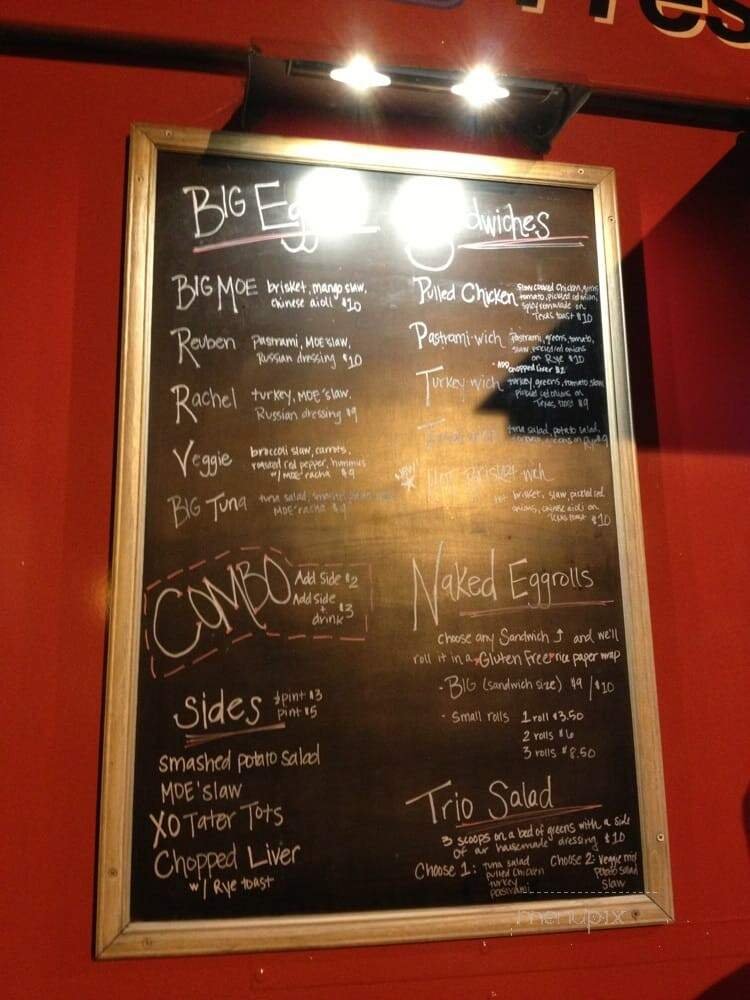 Fres
BIG Egg
BIG MOE brisket, mango slaw,
chinese aioli $10
Reuben pastrami, MOE'slaw,
Russian dressing $10
Rachel turkey, MOE'slaw,
Russian dressing $9
Veggie broccoli slaw, carrots,
roasted red pepper, hummus
w/ MOE'racha $9
BIG Tuna tuna salad,
MOE'racha $9
COMBO
Add side $2
Add side
+
drink $3
Sides ½ pint $3
pint $5
smashed potato salad
MOE'slaw
XO Tater Tots
Chopped Liver
w/ Rye toast
dwiches
Pulled Chicken slow cooked chicken, greens
tomato, pickled red onion,
spicy remoulade on
Texas toast $10
Pastrami-wich pastrami, greens, tomato,
slaw, pickled red onions
on Rye $10
• ADD chopped liver $2
Turkey-wich turkey, greens, tomato, slaw
pickled red onions on
Texas toast $9
tuna salad, potato salad,
onions on Rye $9
NEW!
Hot Brisket-wich
hot brisket, slaw, pickled red
onions, chinese aioli on
Texas toast $10
Naked Eggrolls
choose any Sandwich ↑ and we'll
roll it in a Gluten Free rice paper wrap
- BIG (sandwich size) $9 / $10
- small rolls 1 roll $3.50
2 rolls $6
3 rolls $8.50
Trio Salad
3 scoops on a bed of greens with a side
of our housemade dressing $10
Choose 1: tuna salad
pulled chicken
turkey
pastrami
Choose 2: veggie mix
potato salad
slaw
menupix